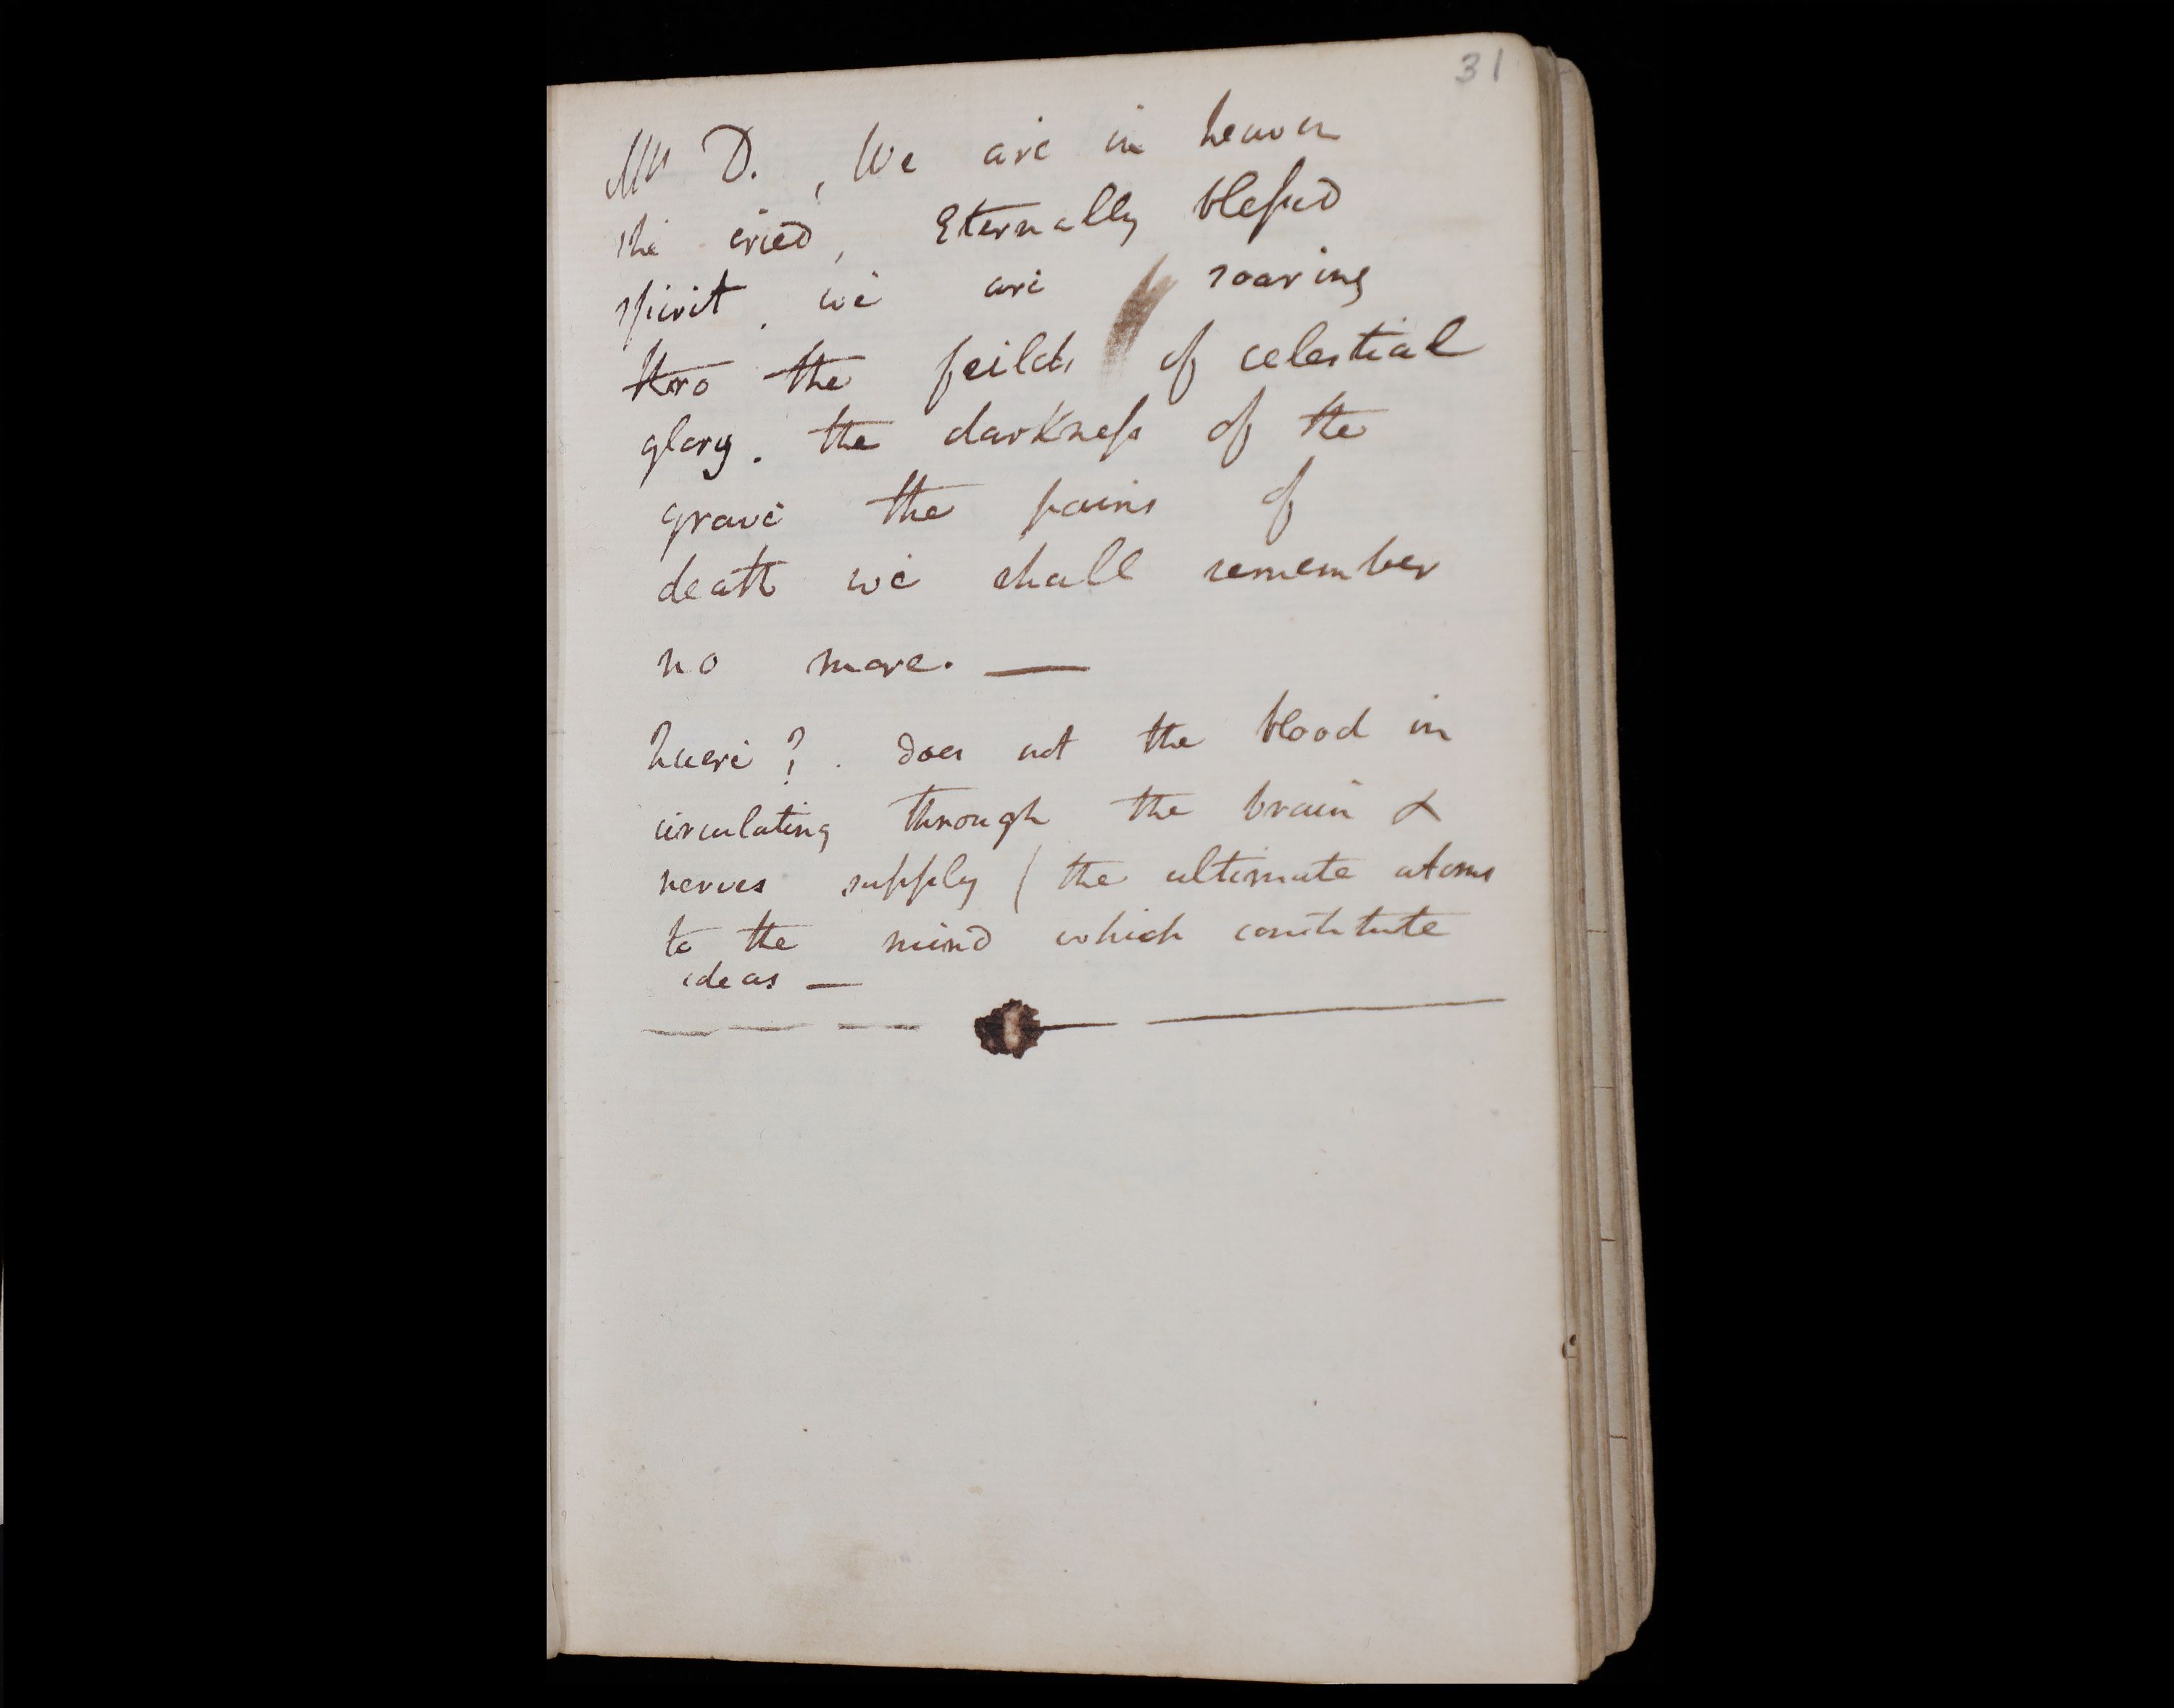 31
Mrs D. , We are in heaven
she cried, Eternally blessed
spirit, we are soaring
thro the feilds of celestial
glory. the darkness of the
grave the pains of
death we shall remember
no more. —
Quere? . does not the blood in
circulating through the brain &
nerves supply (the ultimate atoms
to the mind which constitute
ideas —